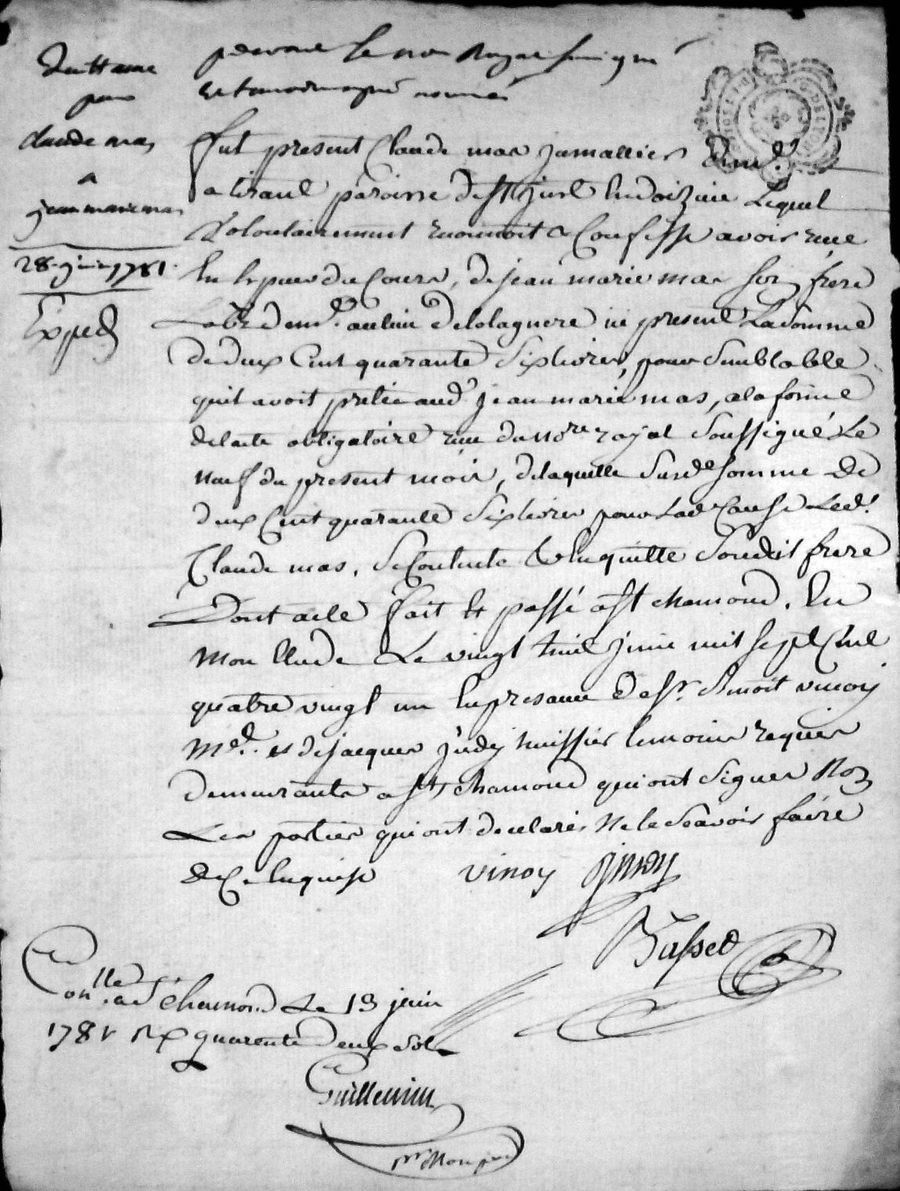 Quittance
pour
Claude mas
a
jean marie mas
28 juin 1781
Exped
pardevant le no.re Royal soussigné
et temoins après nommés
fut present Claude mas jamallier dem.t
a paroisse de st just en doizieu Lequel
volontairement reconnoit & Confesse avoir reçu
En Espece du Cours, de jean marie mas son frere
Lab.r dem.t au lieu de ici present La Somme
de deux Cent quarante Six livres, pour Semblable
qu'il avoit pretée aud.t jean marie mas, a la forme
de lacte obligatoire reçu du no.re royal Soussigné Le
neuf du present mois, de laquelle Susd.e Somme de
deux Cent quarante Six livres pour Lad.e Cause Led.t
Claude mas, Se Contente & En quitte Sondit frere
Dont acte fait & passé a st chamond, En
mon Etude Le vingt huit juin mil Sept Cent
quatre vingt un En presence de s.r Benoit vinoy
M.d et de jacques huissier temoins requis
demeurants a st chamond qui ont Signés Non
Les parties qui ont declarés Ne le Sçavoir faire
de Ce Enquis vinoy
Con.lle a st Chamond Le 13 juin
1781 quarente deux Sols
Guillemin